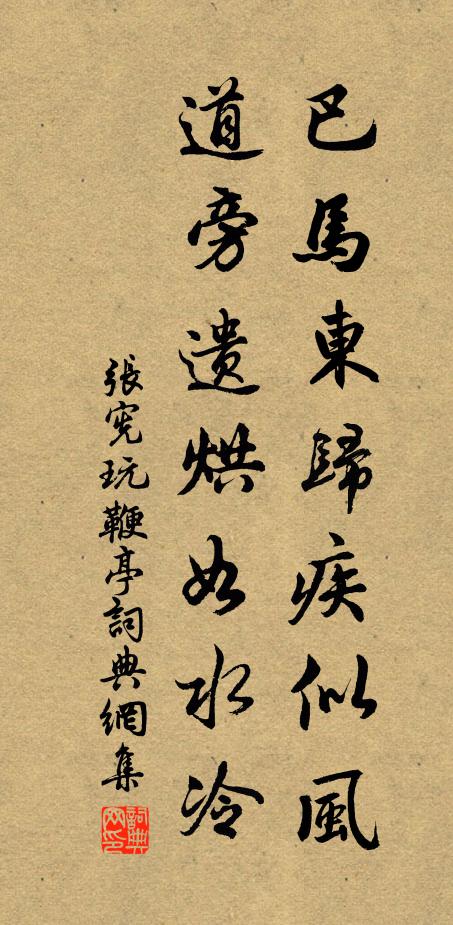 巴馬東歸疾似風
道旁遺烘如水冷
張宪玩鞭亭詞典網集
詞典网印